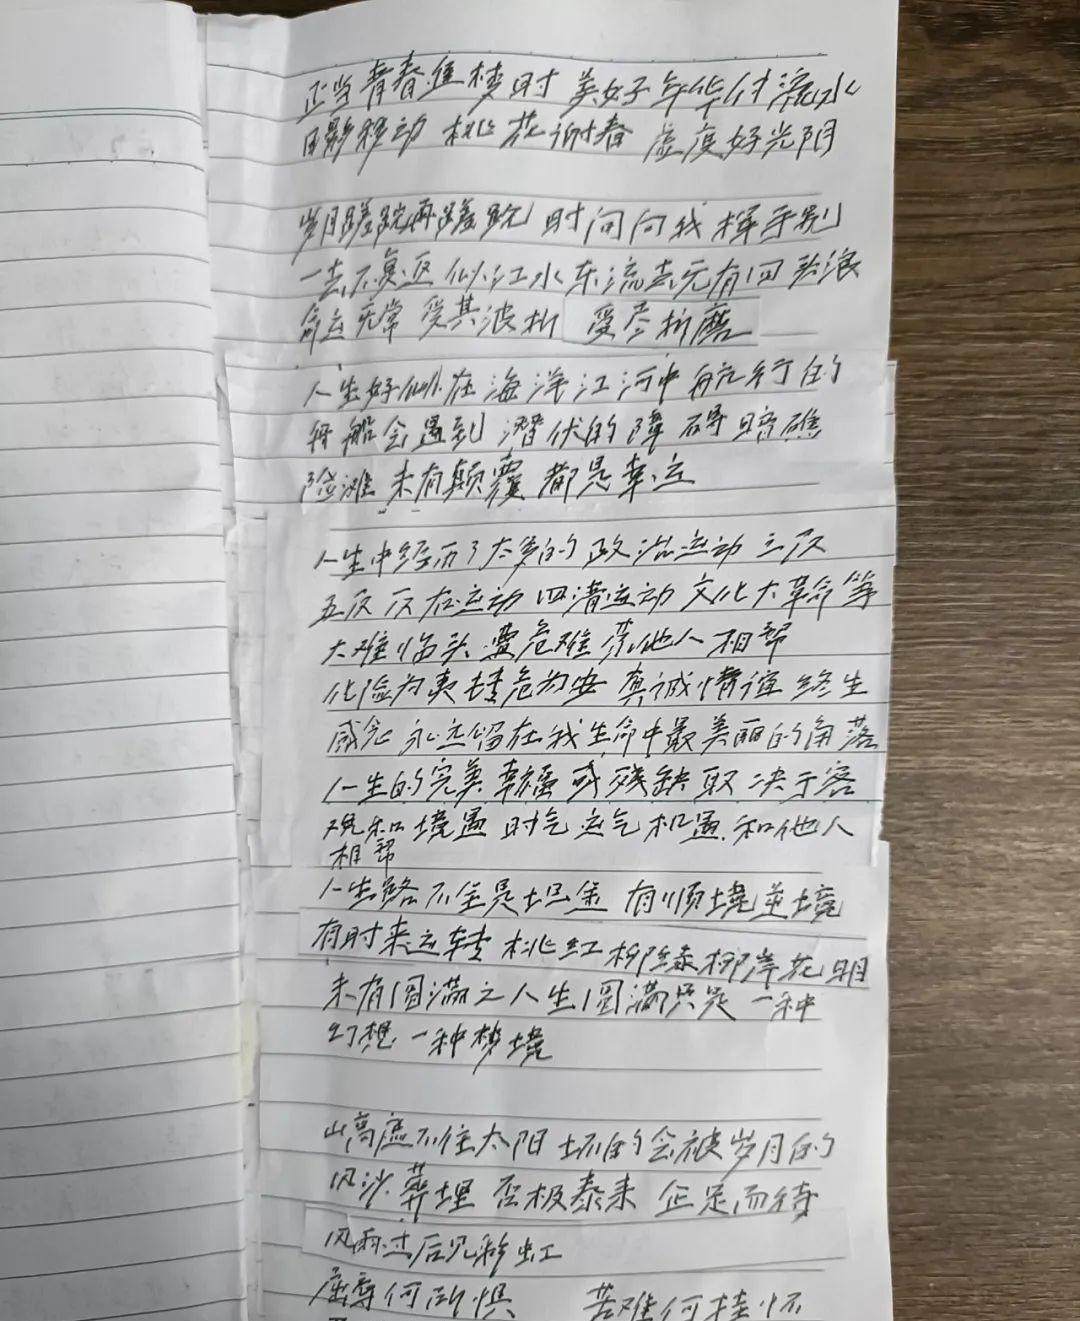 正当青春追梦时 美好年华付流水
日影移动 桃花谢春 虚度好光阴
岁月蹉跎再蹉跎 时间向我挥手别
一去不复返 似江水东流去无有回头浪
命运无常 受其波折 受尽折磨
人生好似在海洋江河中航行的
舟船会遇到潜伏的障碍暗礁
险滩 未有颠覆 都是幸运
人生中经历了太多的政治运动 三反
五反 反右运动 四清运动 文化大革命等
大难临头 遭危难 荣他人相帮
化险为夷 转危为安 真诚情谊 终生
感念 永远留在我生命中最美丽的角落
人生的完美幸福或残缺取决于客
观和境遇 时气运气机遇 和他人
相帮
人生路不全是坦途 有顺境逆境
有时来运转 桃红柳绿柳岸花明
未有圆满之人生 圆满只是一种
幻想 一种梦境
山高遮不住太阳 坏的会被岁月的
风沙葬埋 否极泰来 企足而待
风雨过后见彩虹
屈辱何所惧 苦难何挂怀